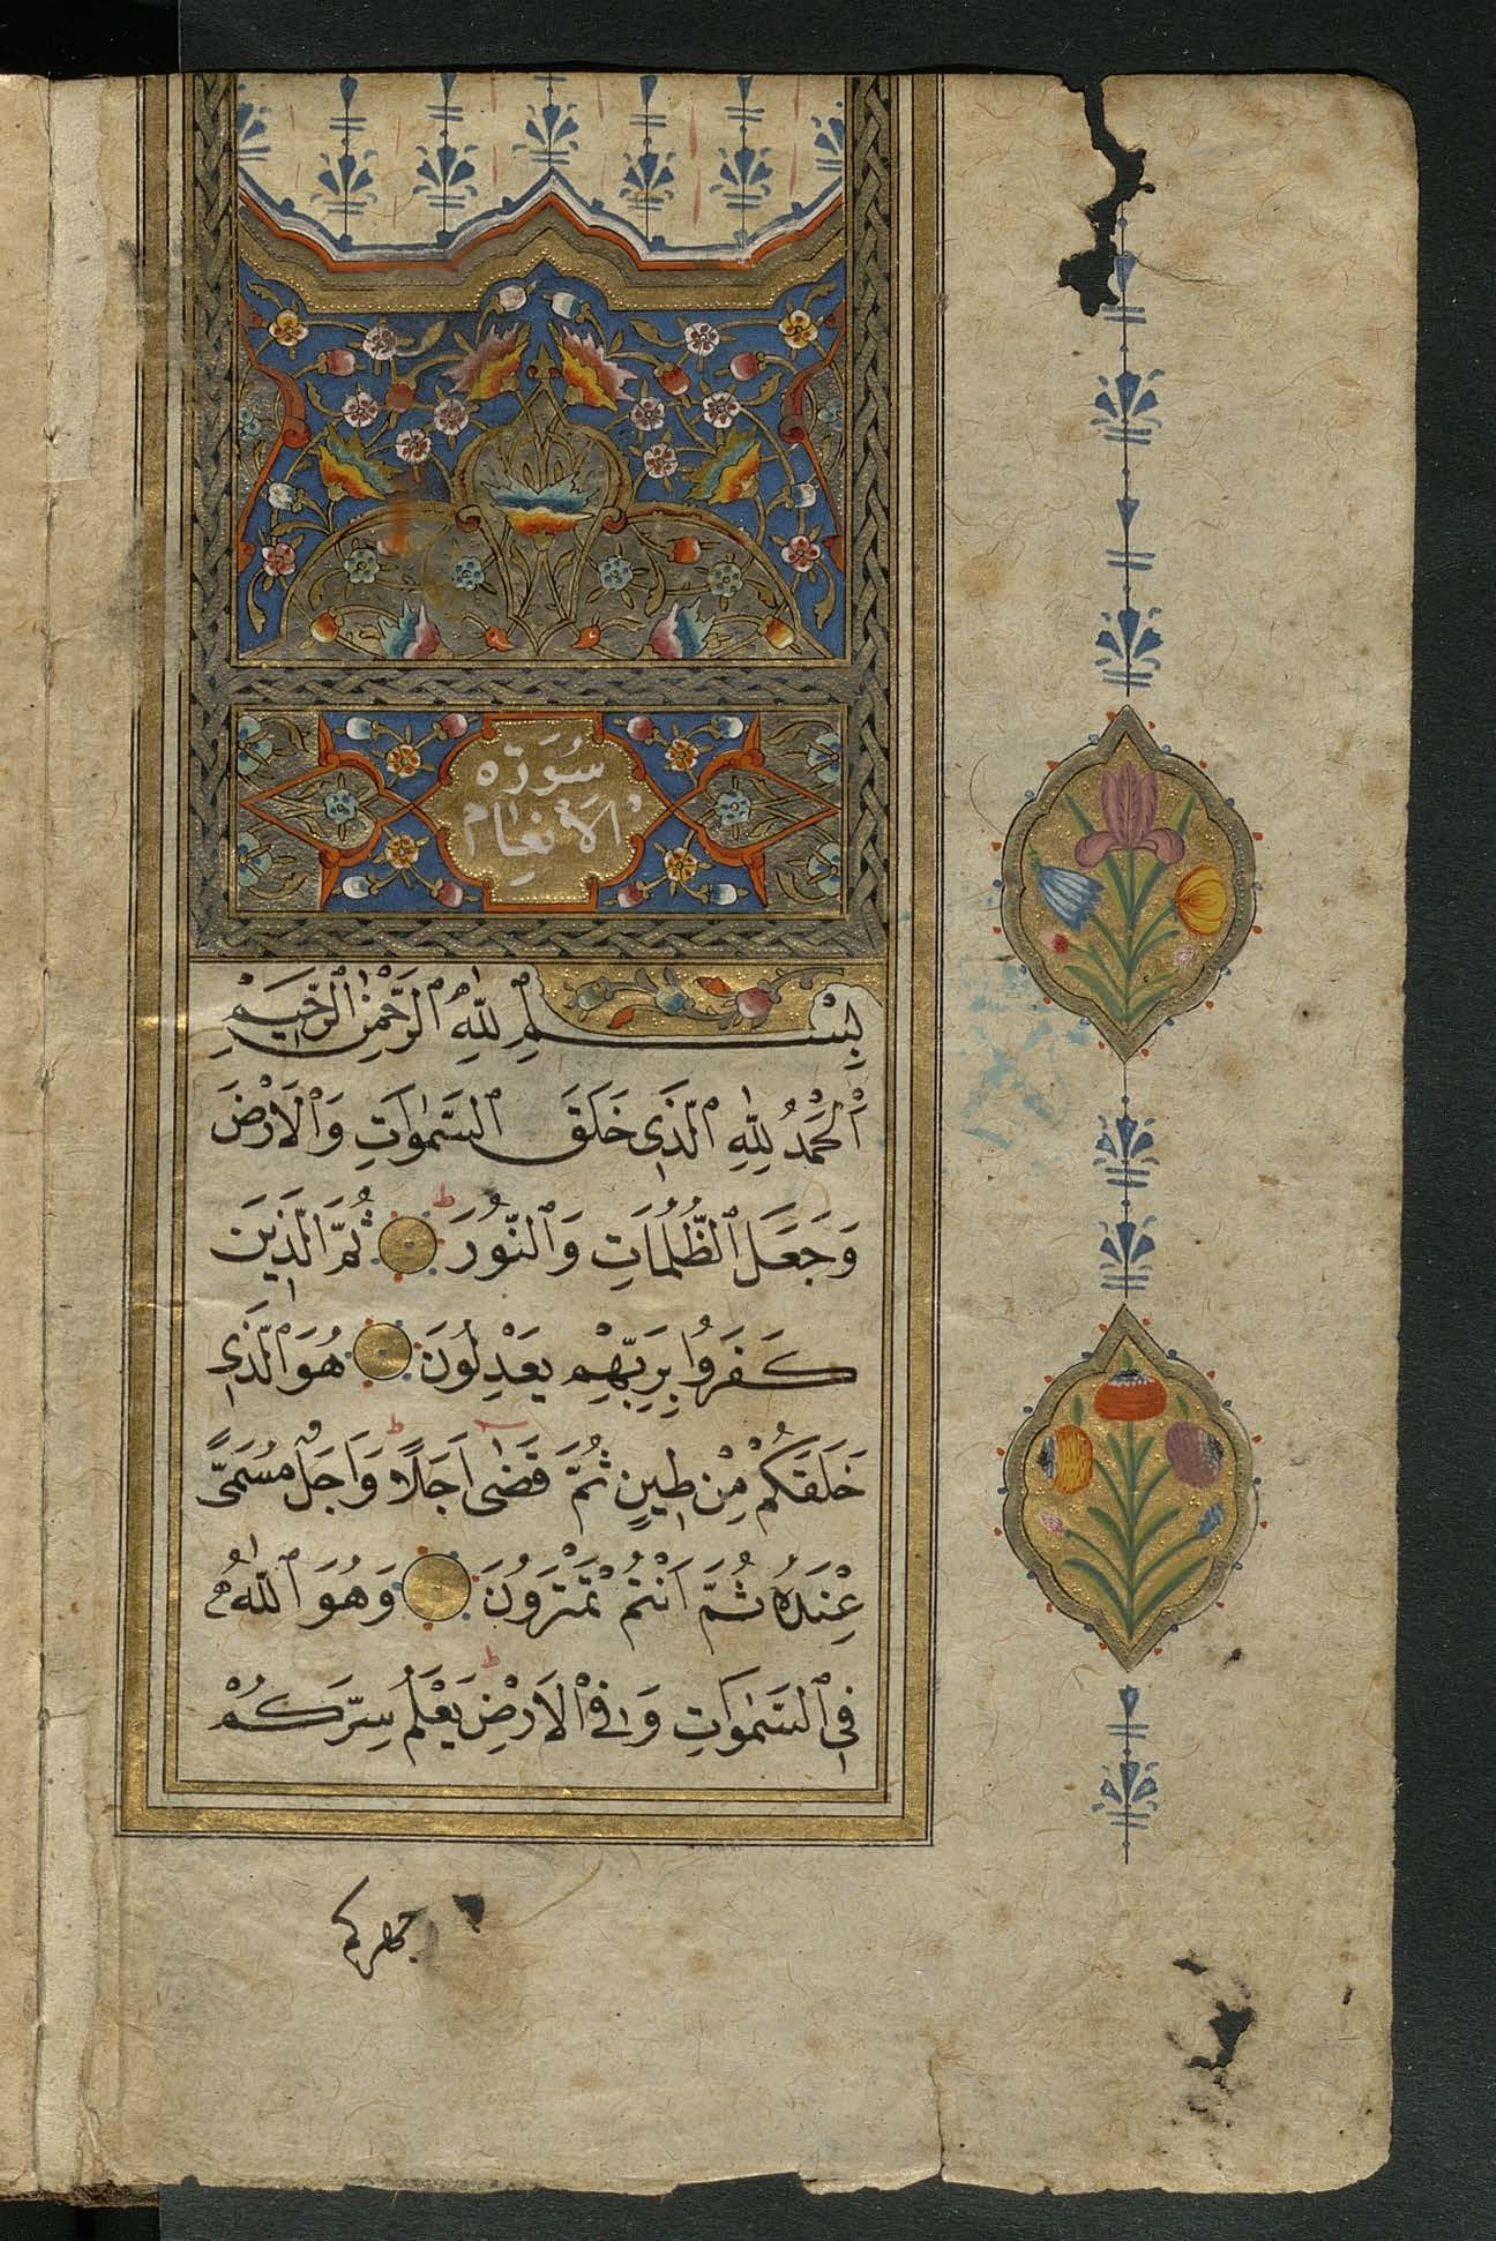 سُورَة
الأَنعام
بِسْمِ ٱللّٰهِ ٱلرَّحْمٰنِ ٱلرَّحِيمِ
اَلْحَمْدُ لِلّٰهِ ٱلَّذِى خَلَقَ ٱلسَّمٰوَاتِ وَٱلْاَرْضَ
وَجَعَلَ ٱلظُّلُمَاتِ وَٱلنُّورَ ط ثُمَّ ٱلَّذِينَ
كَفَرُوا بِرَبِّهِمْ يَعْدِلُونَ هُوَ ٱلَّذِى
خَلَقَكُمْ مِنْ طِينٍ ثُمَّ قَضٰى اَجَلًا ط وَاَجَلٌ مُسَمًّى
عِنْدَهُ ثُمَّ اَنْتُمْ تَمْتَرُونَ وَهُوَ ٱللّٰهُ
فِى ٱلسَّمٰوَاتِ وَفِى ٱلْاَرْضِ ط يَعْلَمُ سِرَّكُمْ
جهركم